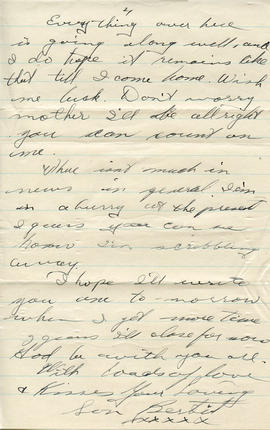 2/
Everything over here
is going along well, and
I do hope it remains like
that till I come home. Wish
me luck. Don't worry
mother I'll be all right
you can count on
me.
There isn't much in
news in general I'm
in a hurry at the present
I guess you can see
how I'm scribbling
away.
I hope I'll write
you one to-morrow
when I get more time
I guess I'll close for now
God be with you all.
With loads of love
& Kisses Your loving
Son Bertie
xxxxx